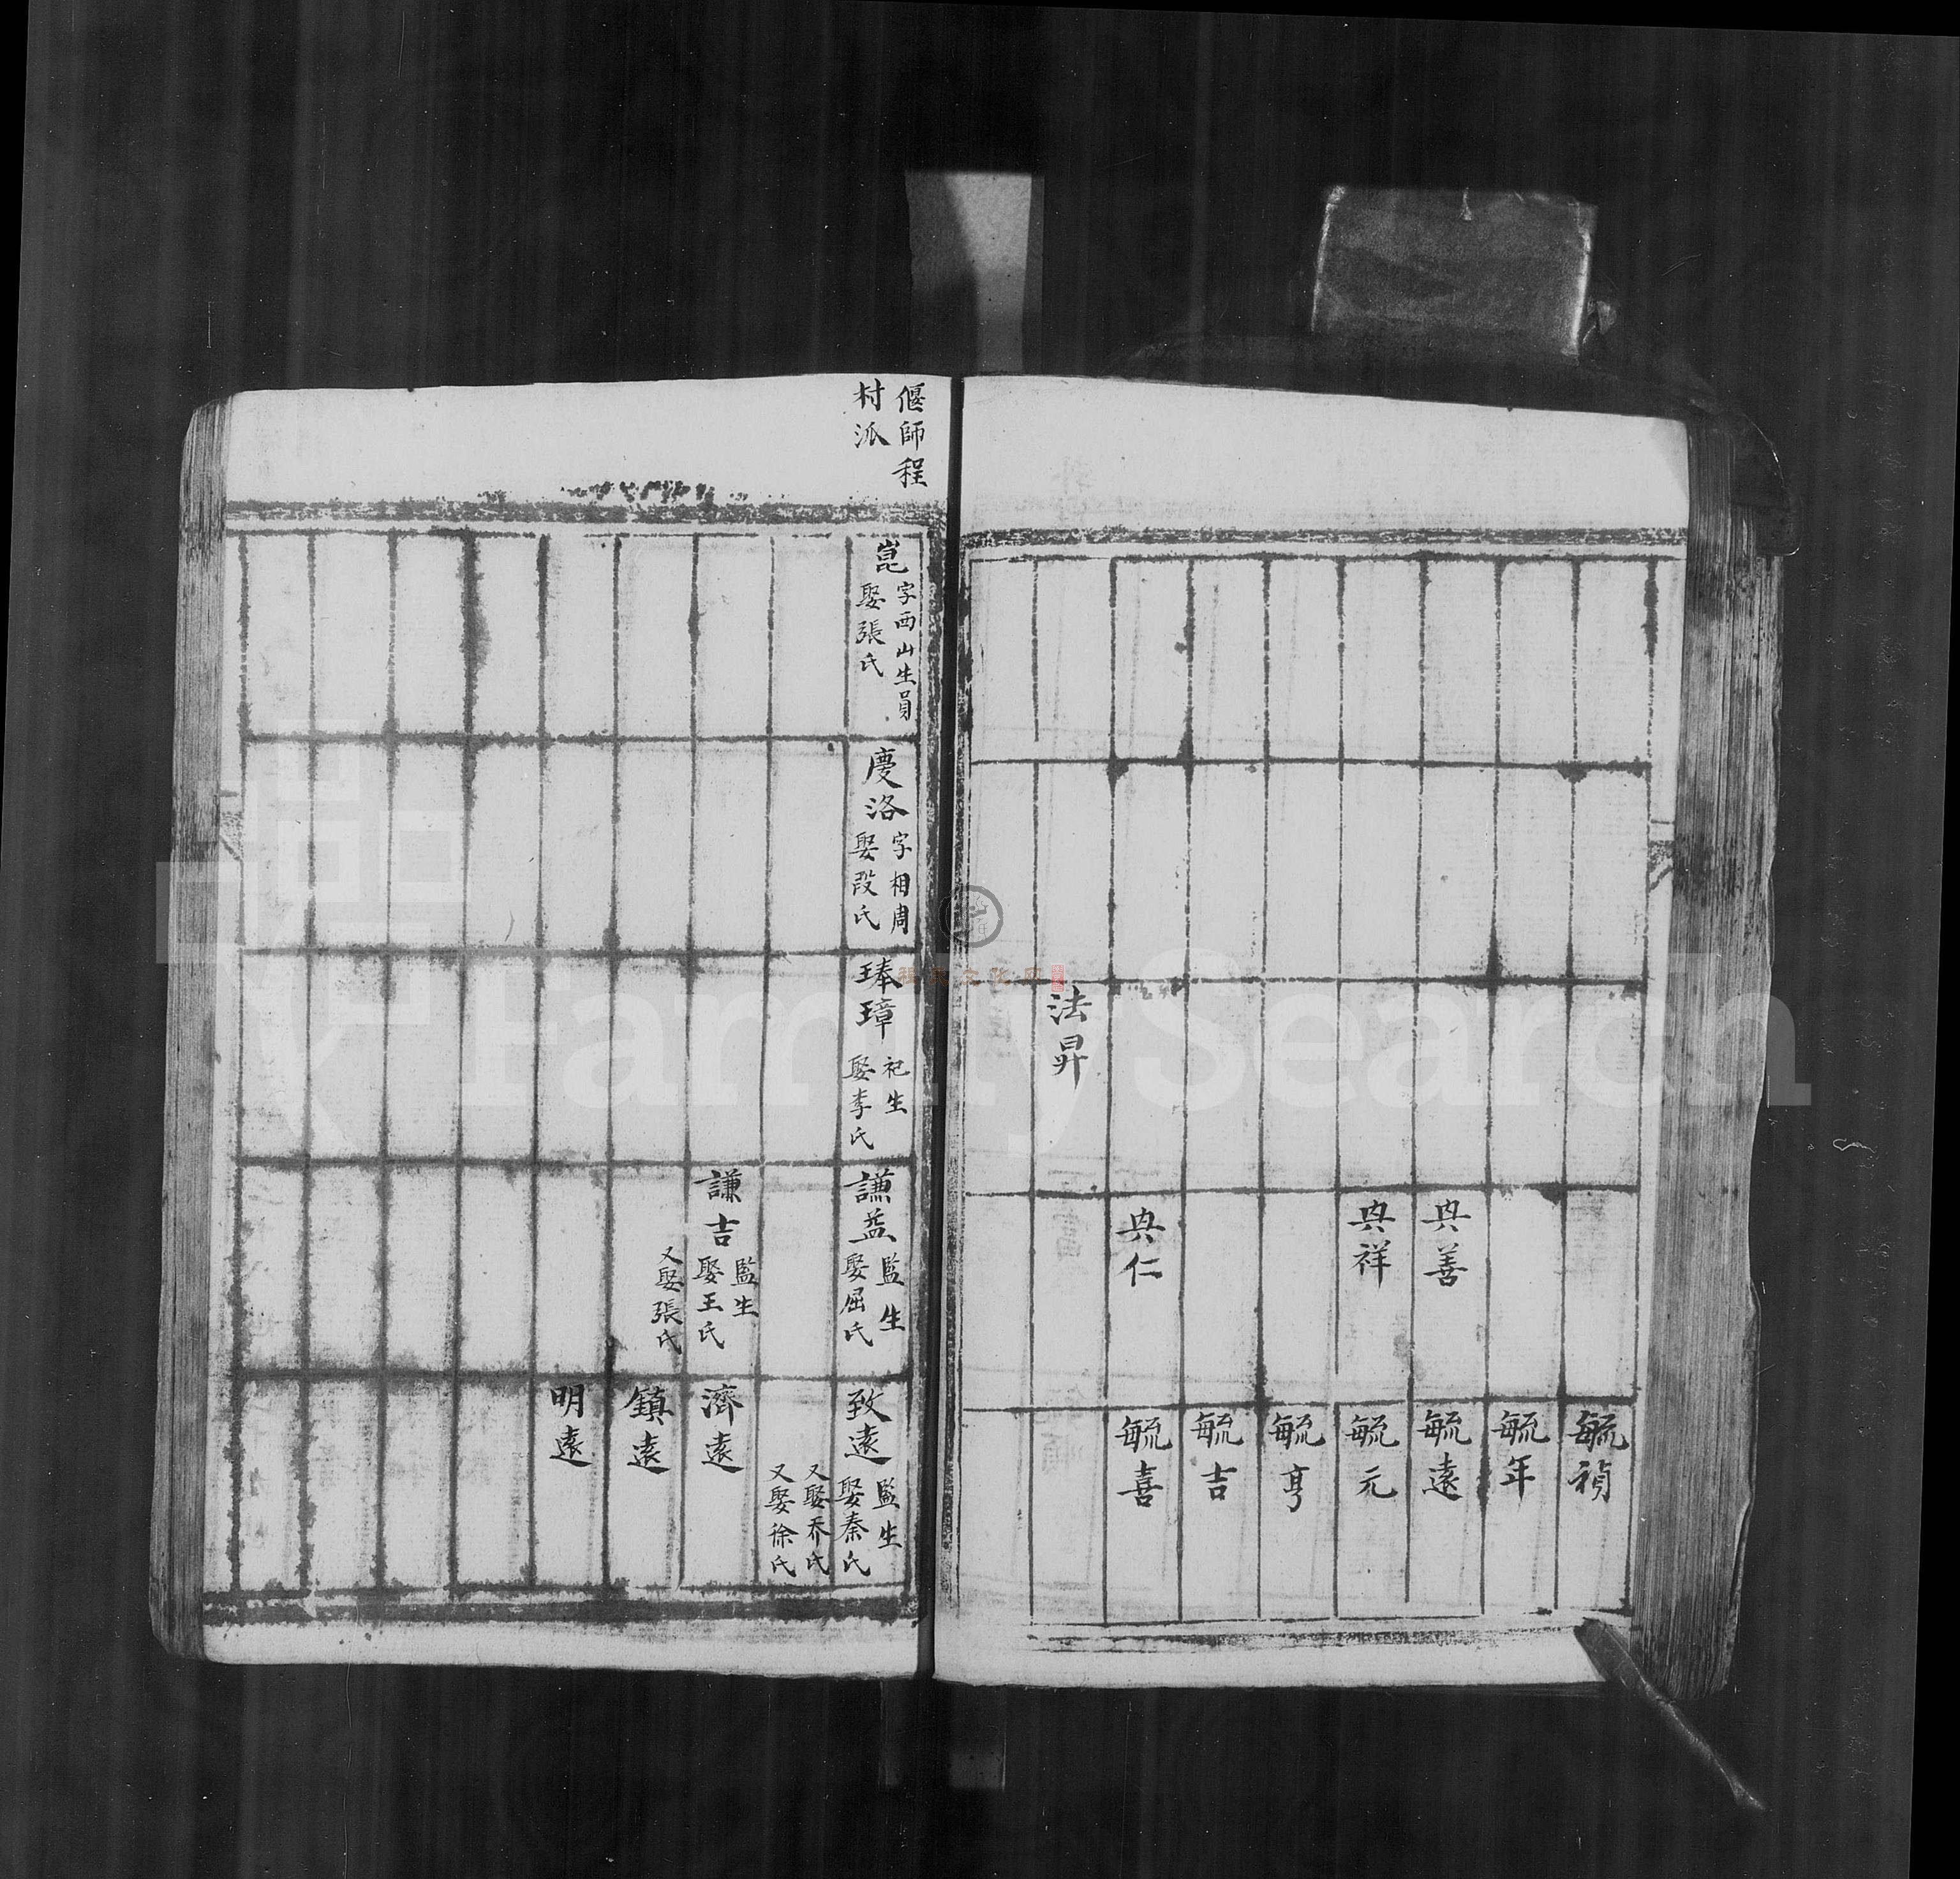 毓禎
毓年
典善
毓遠
典祥
毓元
毓亨
毓吉
典仁
毓喜
法昇
偃師程
村派
崑
字西山生員
娶張氏
慶洛
字相周
娶段氏
琫璋
祀生
娶李氏
謙益
監生
娶屈氏
致遠
監生
娶秦氏
又娶乔氏
又娶徐氏
謙吉
監生
娶王氏
又娶張氏
濟遠
鎮遠
明遠
FamilySearch